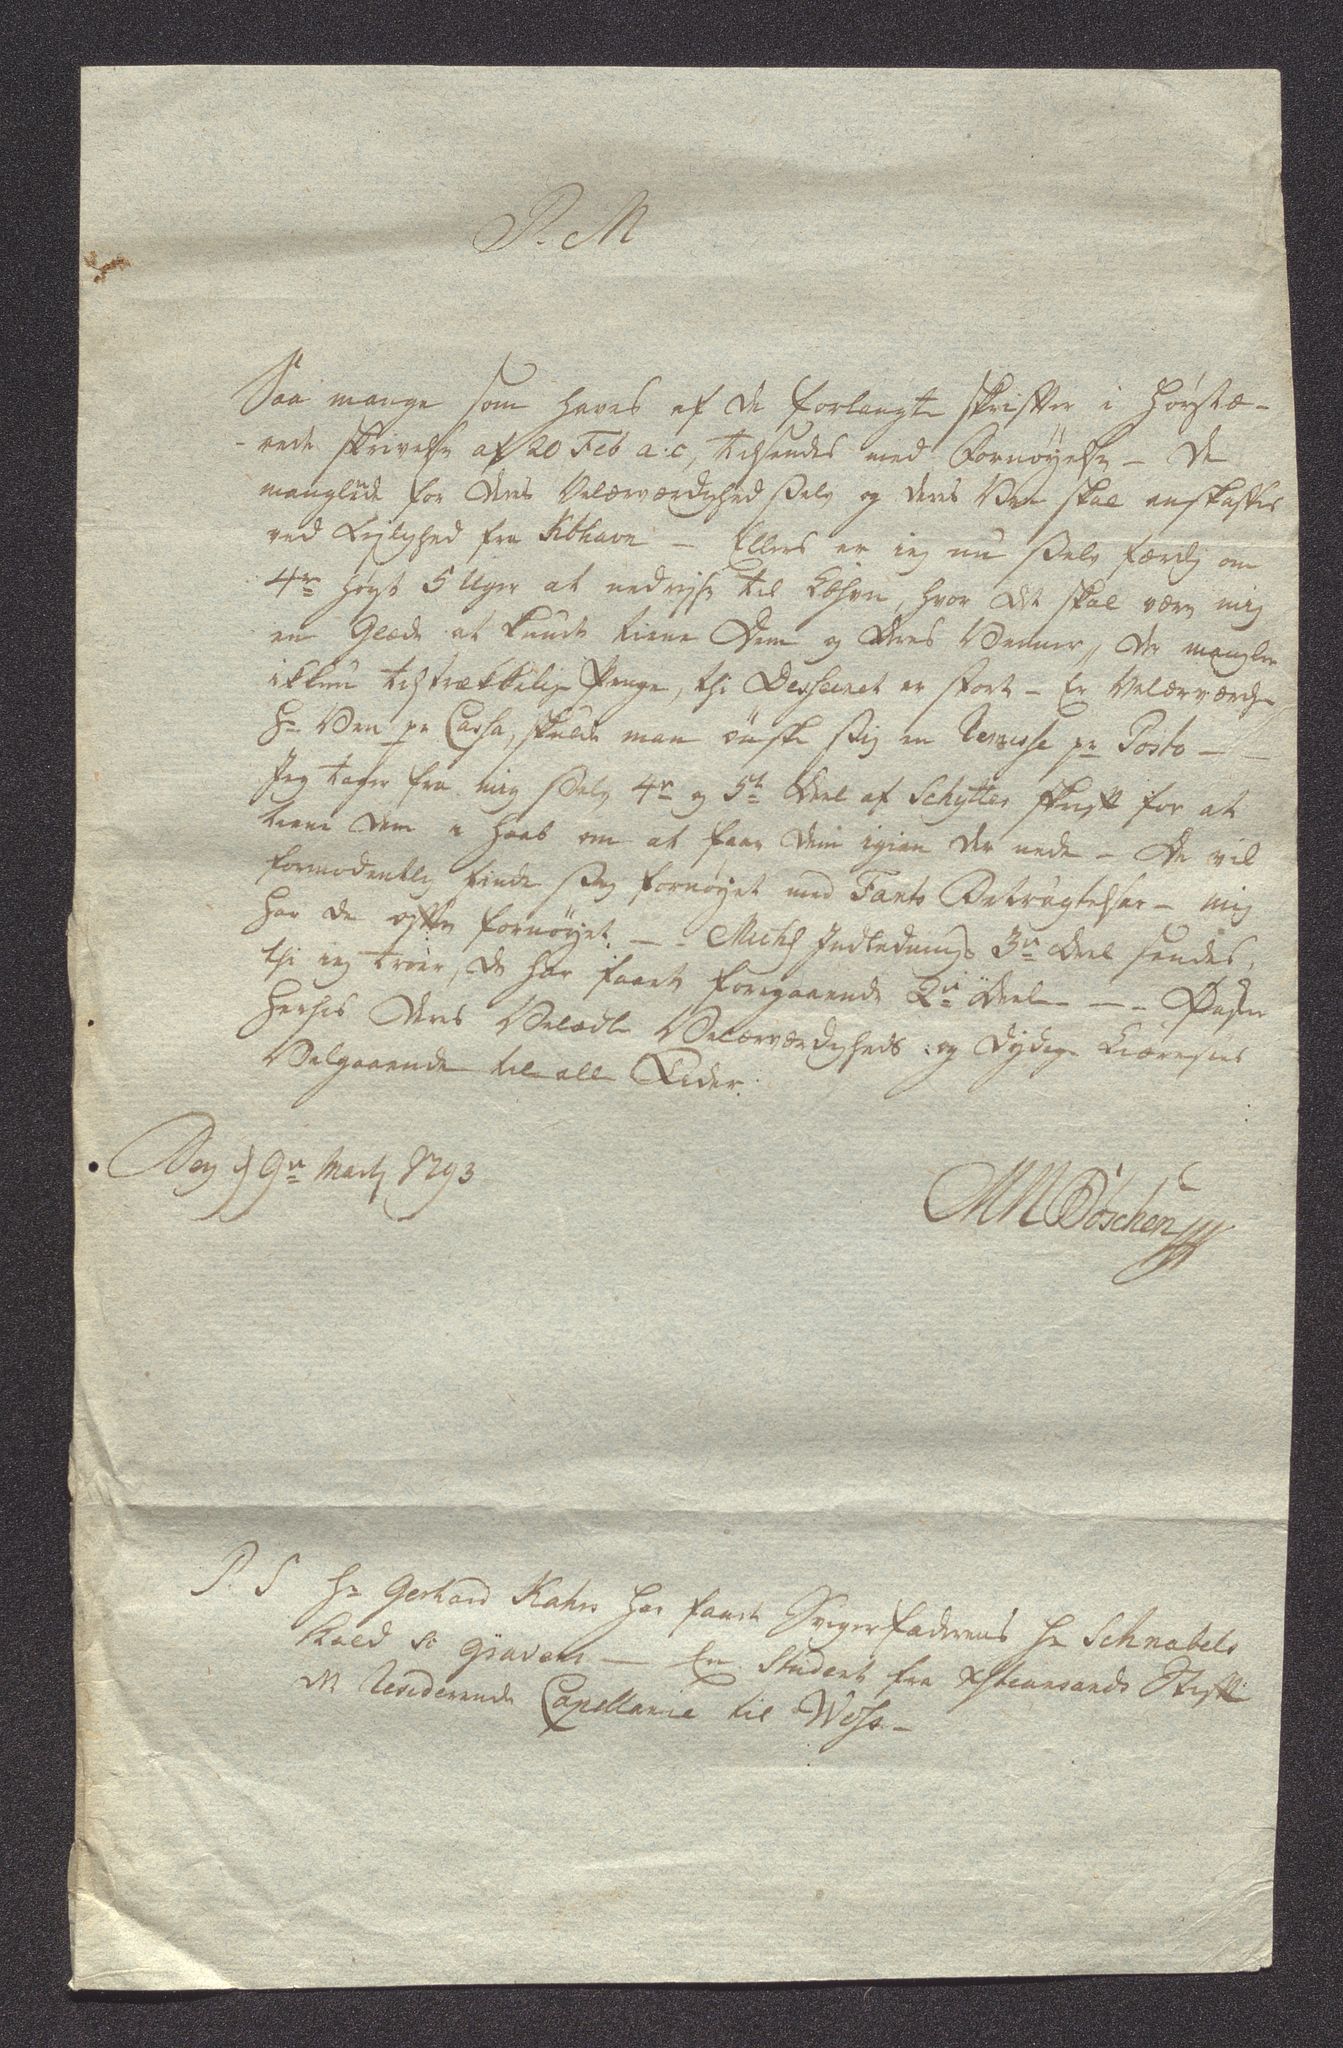 P. M
Saa mange som haves af de forlangte Skrifter i høystæ-
-rede Skrivelse af 20 Feb a. c, tilsendes med Fornøyelse - De
manglede for deres Velærværdighed Selv og deres Ven skal anskaffes
ved Leylighed fra Kbhavn - Ellers er jeg nu Selv færdig om
4re høyst 5 Uger at nedreyse til Kbhvn, hvor det skal være mig
en Glæde at kunde tiene Dem og deres Venner, der mangler
ikkun tilstrækkelig Penge, thi Desseinet er stort - Er Velærværdige
Hr Ven pr Cassa, skulde man ønske sig en Remisse pr Posto -
Jeg tager fra mig Selv 4de og 5te Deel af Schyttes Skrift for at
tiene Dem i Haab om at faae dem igien der nede - De vil
formodentlig finde Sig fornøyet med Fants Betragtelser - mig
har de ofte fornøyet. - - Mich Indlednings 3die Deel sendes,
thi jeg troer, De har faaet foregaaende 2de Deele -
Deres Velædle Velærværdigheds og Dydige Kiærestes
Velgaaende til all Tider.
d 9de Martz 1793
MM Böschen
P. S Hr Gerhard Kahrs har faaet Svigerfaderens Hr Schnabels
Kald til Graven - En Student fra Xstiansands Stift
Residerende Capellanie til Woss -